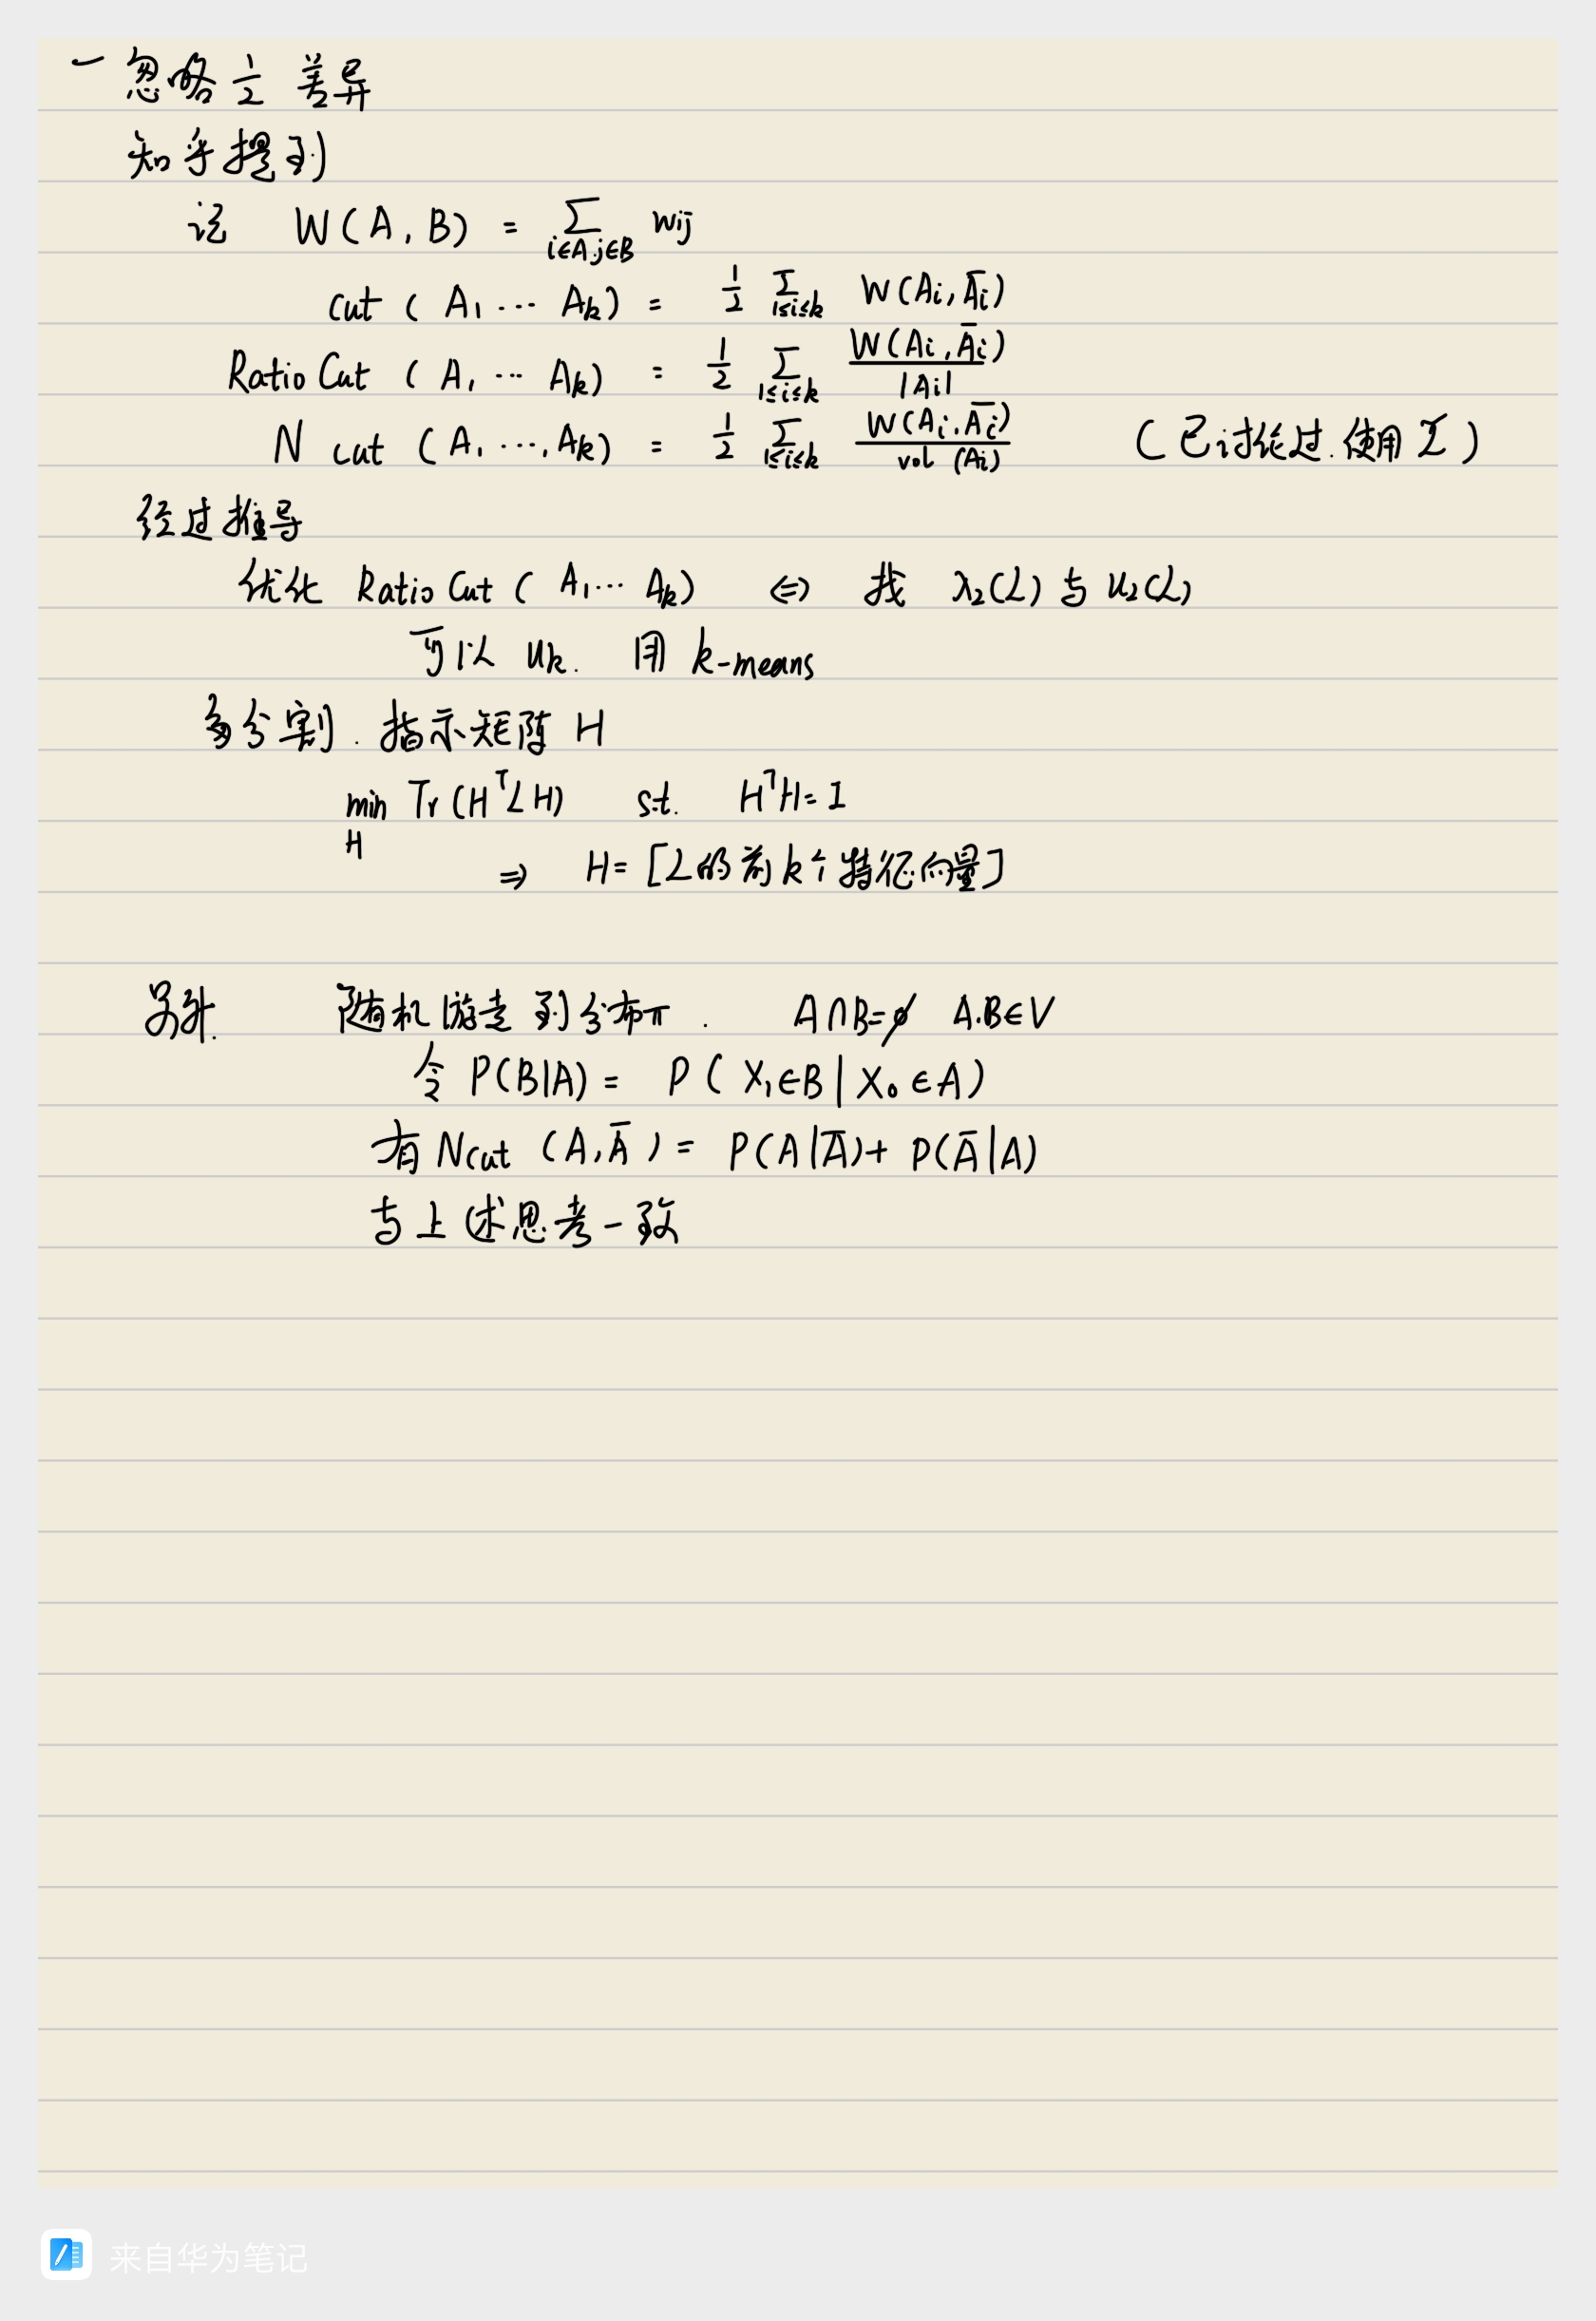 一 忽略 1/2 差异
知乎提到
记 W(A, B) = ∑_{i∈A, j∈B} wij
cut (A1 ... Ak) = 1/2 ∑_{1≤i≤k} W(Ai, A̅i)
Ratio Cut (A1 ... Ak) = 1/2 ∑_{1≤i≤k} W(Ai, A̅i) / |Ai|
N cut (A1, ..., Ak) = 1/2 ∑_{1≤i≤k} W(Ai, A̅i) / vol (Ai) (已讨论过. 使用 ℒ)
经过推导
优化 Ratio Cut (A1 ... Ak) ⇔ 找 λ2(L) 与 u2(L)
可以 uk. 用 k-means
多分割. 指示矩阵 H
min_H Tr (HᵀLH) s.t. HᵀH = I
⇒ H = [L的前k个特征向量]
另外. 随机游走 到分布π . A∩B=∅ A.B∈V
令 P(B|A) = P ( X1∈B | X0 ∈A)
有 Ncut (A, A̅) = P(A|A̅) + P(A̅|A)
与上述思考一致
来自华为笔记